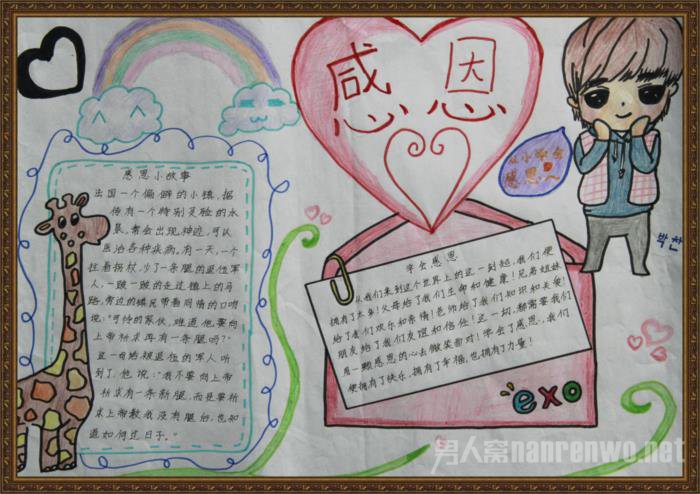 感恩
从小学会
感恩~
박찬
感恩小故事
法国一个偏僻的小镇，据
传有一个特别灵验的水
泉，常会出现神迹，可以
医治各种疾病。有一天，一个
拄着拐杖，少了一条腿的退伍军
人，一跛一跛的走过镇上的马
路，旁边的镇民带着同情的口吻
说："可怜的家伙，难道他要向
上帝祈求再有一条腿吗？"
这一句话被退伍的军人听
到了，他说："我不是要向上帝
祈求有一条新腿，而是要祈
求上帝教我没有腿后，也知
道如何过日子。"
学会感恩
从我们来到这个世界上的这一刻起，我们便
拥有了太多！父母给了我们生命和健康！兄弟姐妹
给了我们欢乐和亲情！老师给了我们知识和关爱！
朋友给了我们友谊和信任！这一切，都需要我们
用一颗感恩的心去微笑面对！学会了感恩，我们
便拥有了快乐，拥有了幸福，也拥有了力量！
exo
男人窝nanrenwo.net